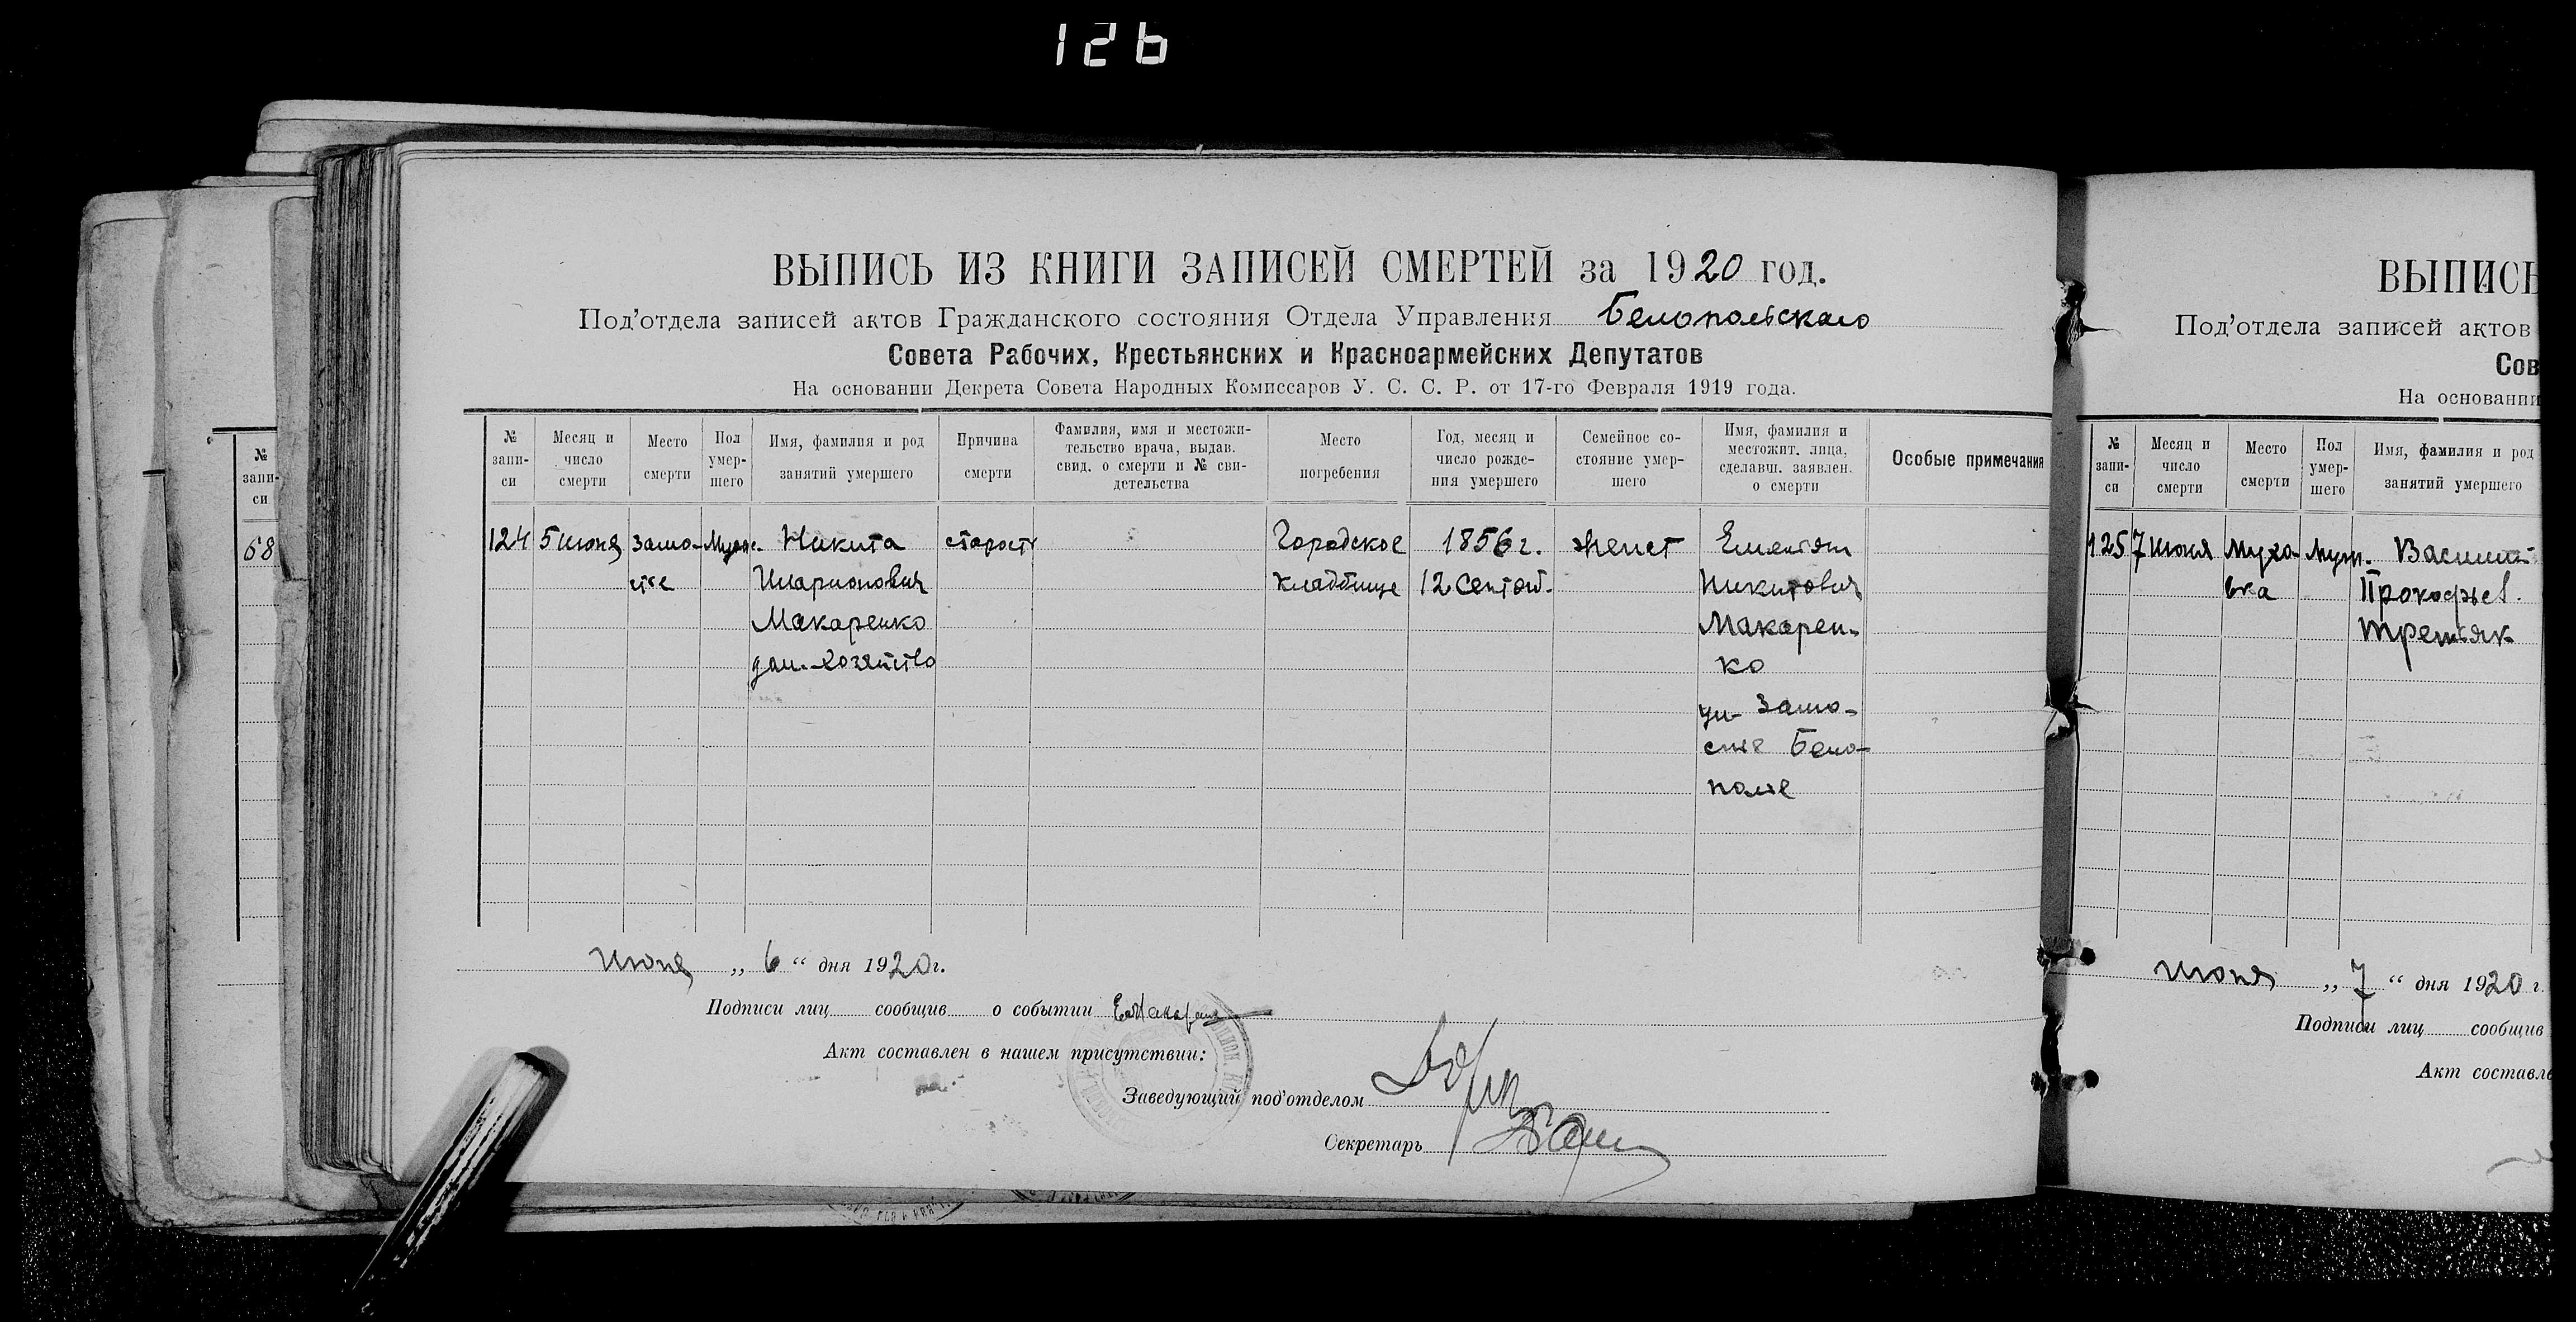 126
ВЫПИСЬ ИЗ КНИГИ ЗАПИСЕЙ СМЕРТЕЙ за 1920 год.
Под’отдела записей актов Гражданского состояния Отдела Управления Белопольскаго
Совета Рабочих, Крестьянских и Красноармейских Депутатов
На основании Декрета Совета Народных Комиссаров У. С. С. Р. от 17-го Февраля 1919 года.
№ записи
Месяц и число смерти
Место смерти
Пол умершего
Имя, фамилия и род занятий умершего
Причина смерти
Фамилия, имя и местожительство врача, выдав. свид. о смерти и № свидетельства
Место погребения
Год, месяц и число рождения умершего
Семейное состояние умершего
Имя, фамилия и местожит. лица, сделавш. заявлен. о смерти
Особые примечания
124 5 июня Замо- Муж. Никита старость Городское 1856 г. женат Емельян
стье Иларионович кладбище 12 Сентяб. Никитович
Макаренко Макарен-
дом. хозяйство ко
ул. Замо-
стье Бело-
полье
Июня „ 6 “ дня 1920 г.
Подписи лиц сообщив о событии
Акт составлен в нашем присутствии:
Заведующий под’отделом
Секретарь
№ записи
68
ВЫПИСЬ
Под’отдела записей актов
Сов
На основании
№ записи
Месяц и число смерти
Место смерти
Пол умершего
Имя, фамилия и род занятий умершего
125 7 июня Муха- Муж. Василий
вка Прокофьев.
Третьяк
Июня „ 7 “ дня 1920 г.
Подписи лиц сообщив
Акт составле